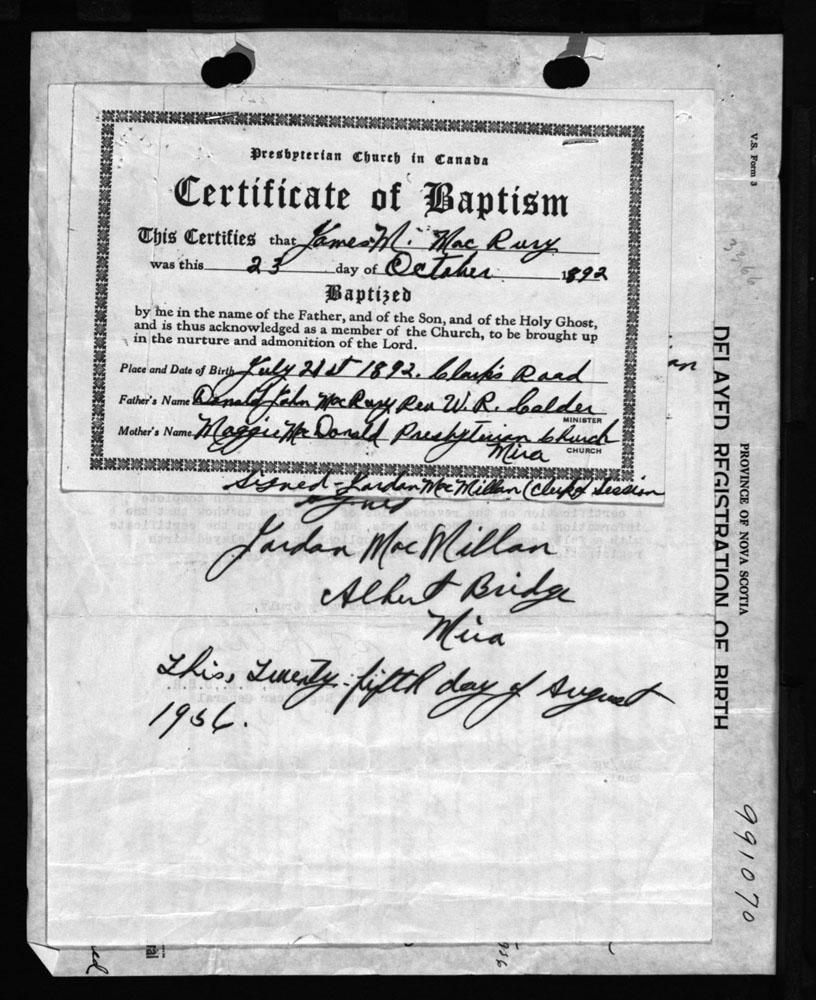 Presbyterian Church in Canada
Certificate of Baptism
This Certifies that James M. Mac Rury
was this 23 day of October 1892
Baptized
by me in the name of the Father, and of the Son, and of the Holy Ghost,
and is thus acknowledged as a member of the Church, to be brought up
in the nurture and admonition of the Lord.
Place and Date of Birth July 21st 1892. Clark's Road
Father's Name Donald John MacRury Rev W. R. Calder
MINISTER
Mother's Name Maggie McDonald Presbyterian Church
Mira CHURCH
Signed - Jordan MacMillan (clerk of Session
Signed
Jordan Mac Millan
Albert Bridge
Mira
This, Twenty-fifth day of August
1956.
V.S. Form 3
3366
PROVINCE OF NOVA SCOTIA
DELAYED REGISTRATION OF BIRTH
991070